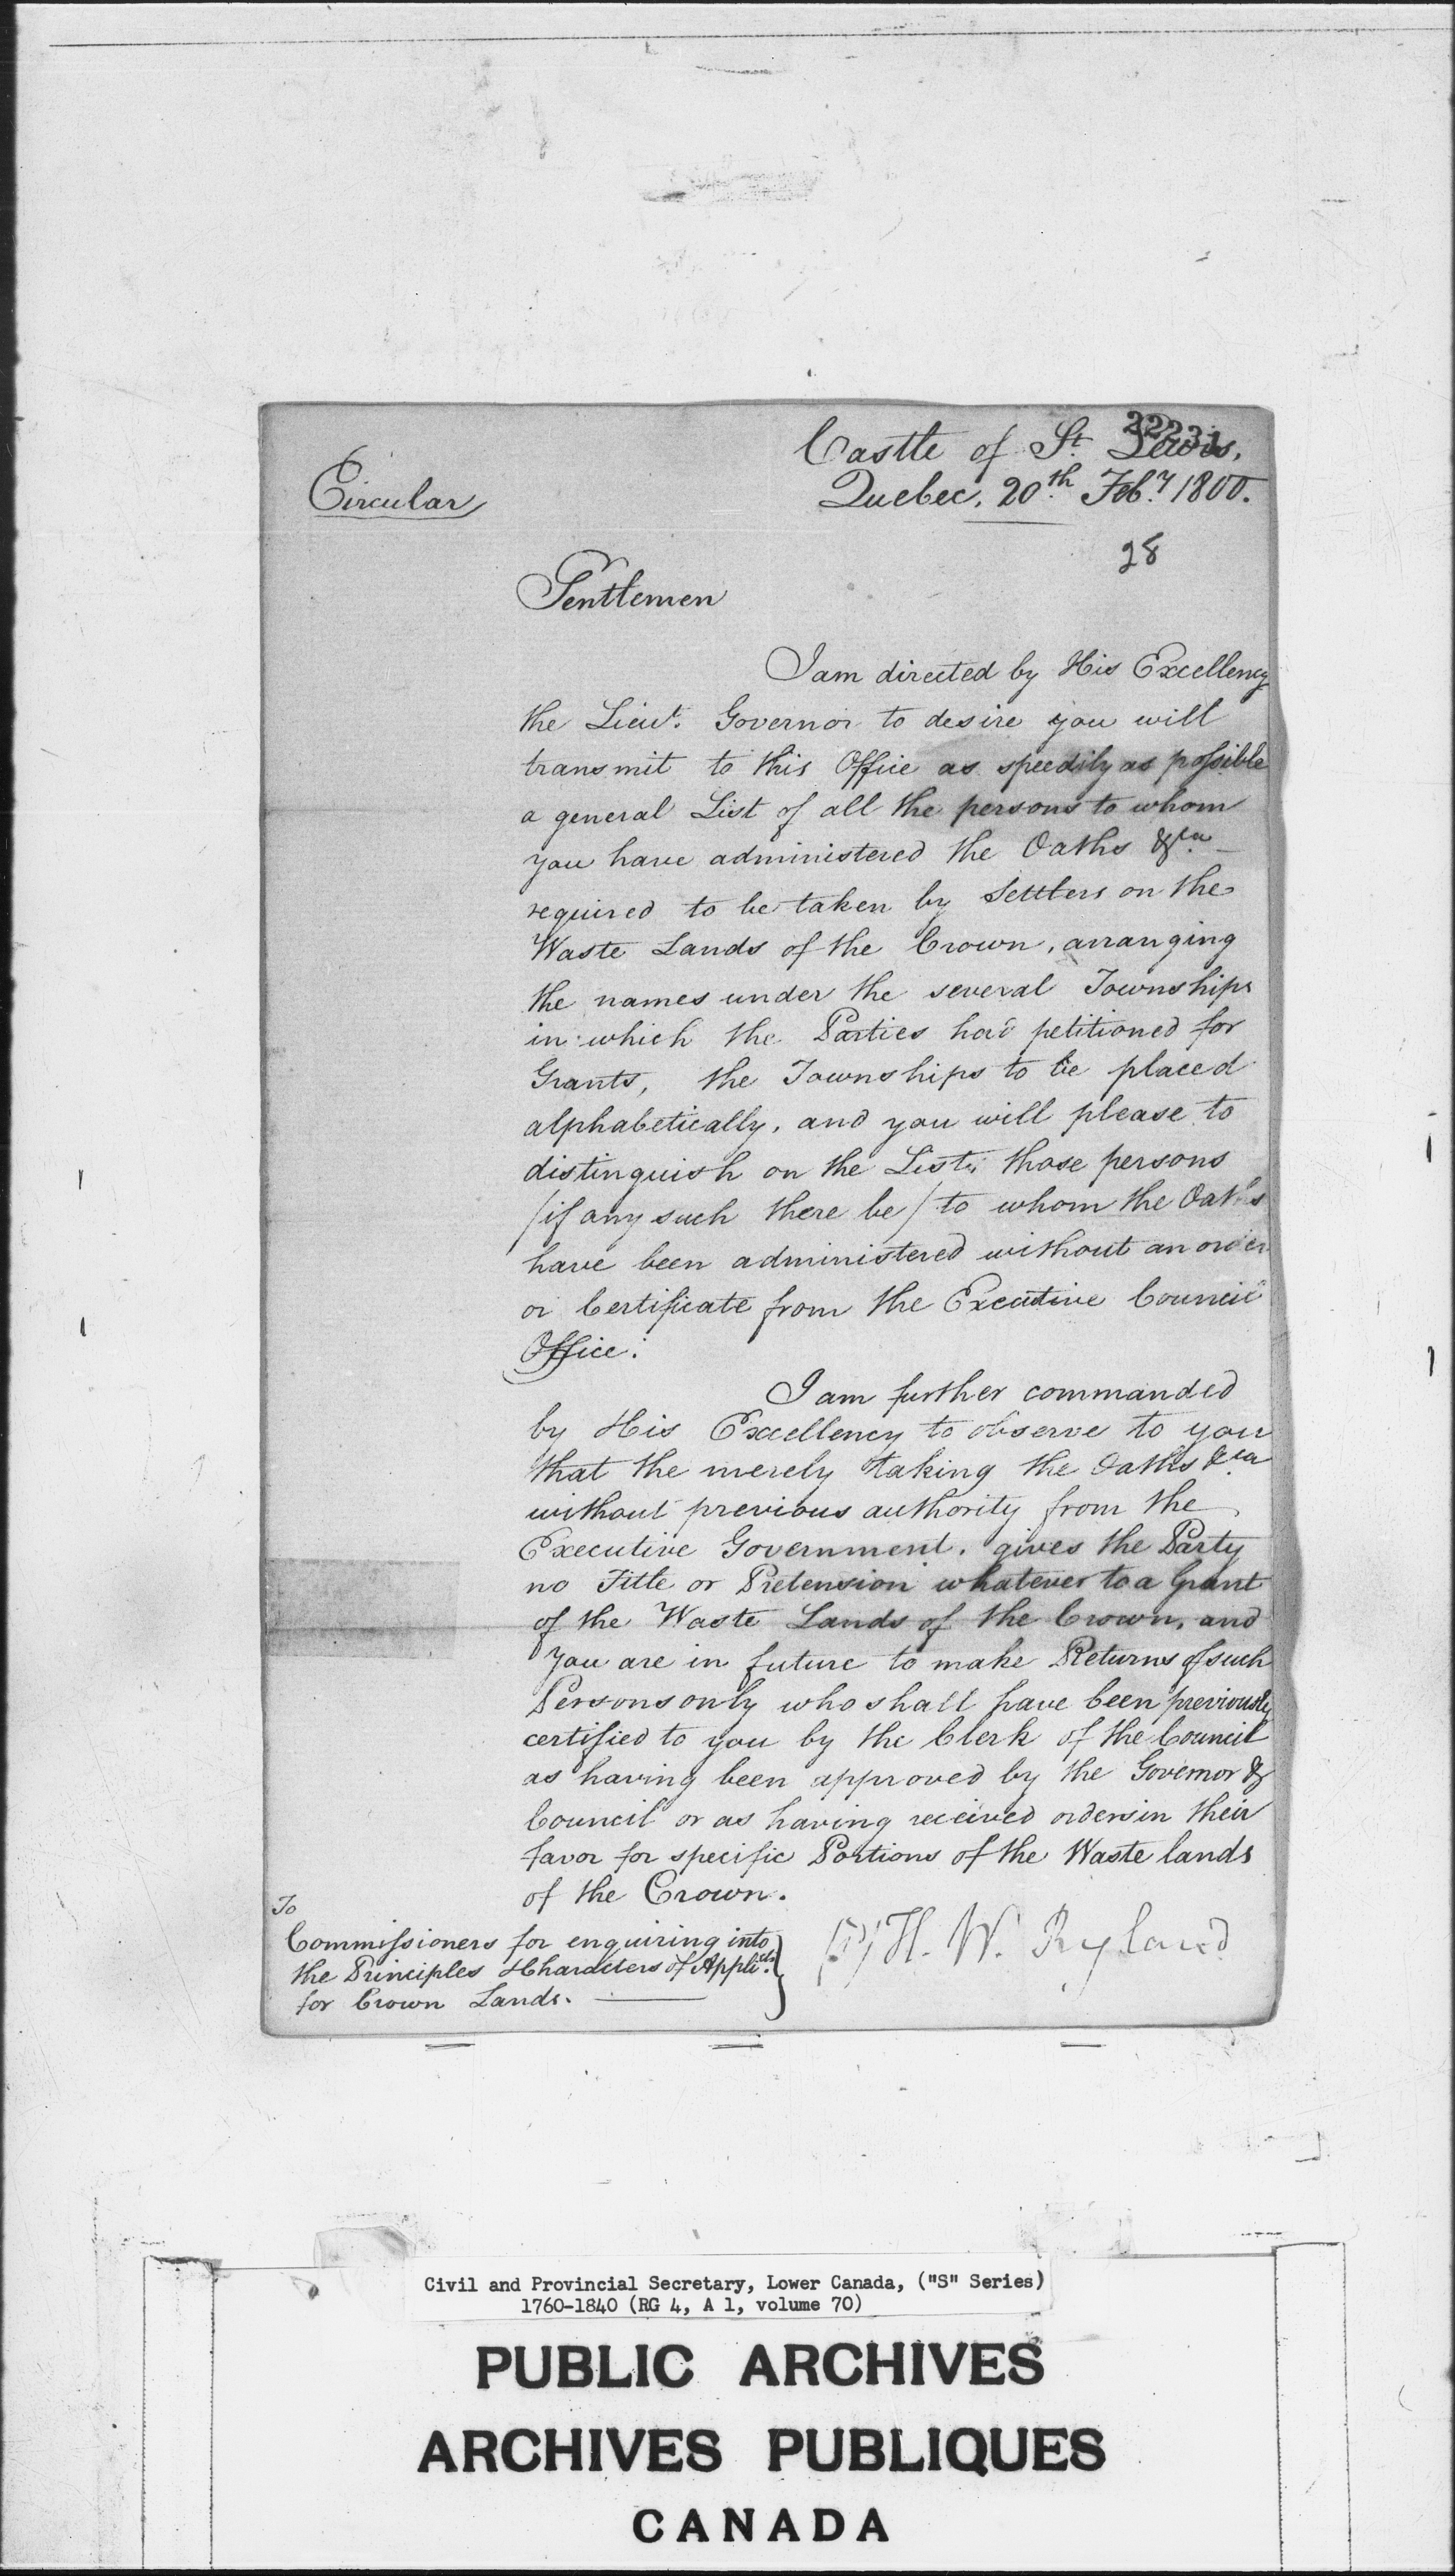 22231
Castle of St. Lewis,
Circular
Quebec, 20th Feby 1800.
28
Gentlemen
I am directed by His Excellency
the Lieut. Governor to desire you will
transmit to this Office as speedily as possible
a general List of all the persons to whom
you have administered the Oaths &ca
required to be taken by Settlers on the
Waste Lands of the Crown, arranging
the names under the several Townships
in which the Parties had petitioned for
Grants, the Townships to be placed
alphabetically, and you will please to
distinguish on the List, those persons
/if any such there be/ to whom the Oaths
have been administered without an order
or Certificate from the Executive Council
Office.
I am further commanded
by His Excellency to observe to you
that the merely taking the Oaths &ca
without previous authority from the
Executive Government, gives the Party
no Title or Pretension whatever to a Grant
of the Waste Lands of the Crown, and
you are in future to make Returns of such
Persons only who shall have been previously
certified to you by the Clerk of the Council
as having been approved by the Governor &
Council or as having received orders in their
favor for specific Portions of the Waste lands
of the Crown.
To
Commissioners for enquiring into
the Principles & Characters of Applicts.
for Crown Lands.
H. W. Ryland
Civil and Provincial Secretary, Lower Canada, ("S" Series)
1760-1840 (RG 4, A 1, volume 70)
PUBLIC ARCHIVES
ARCHIVES PUBLIQUES
CANADA